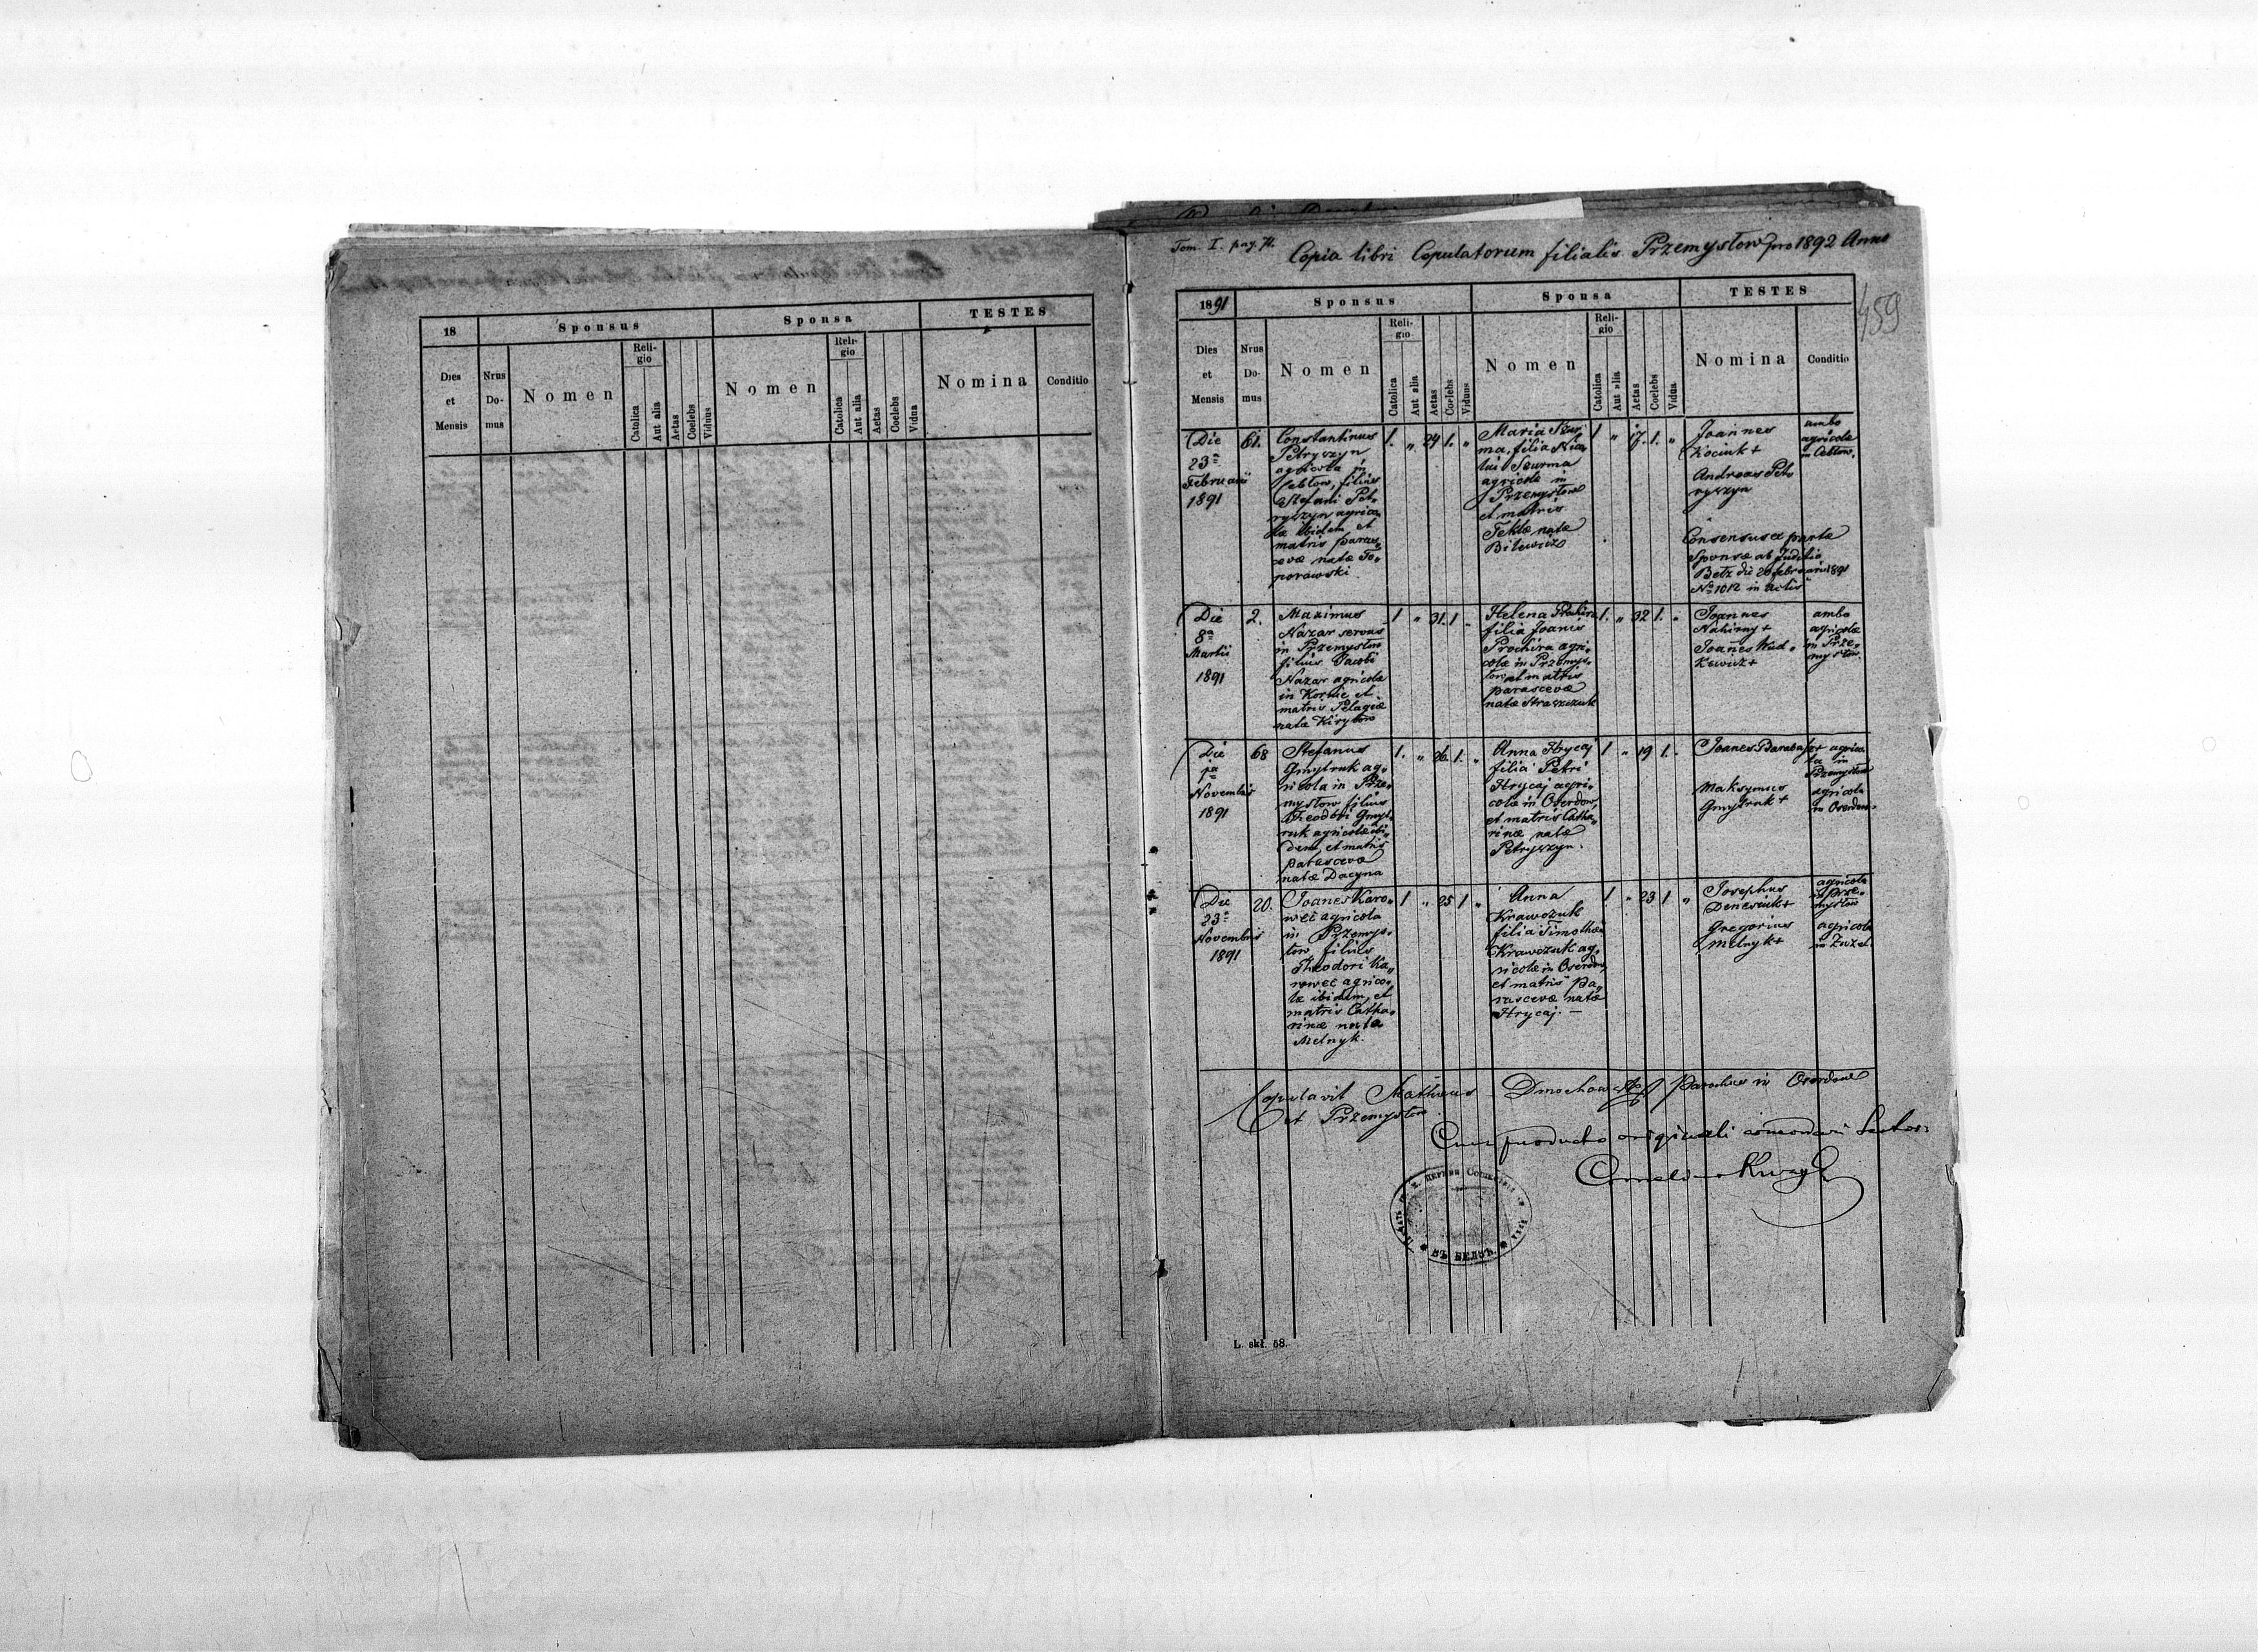 18
Sponsus
Sponsa
TESTES
Dies et Mensis
Nrus Do- mus
Nomen
Reli- gio
Catolica
Aut alia
Aetas
Coelebs
Viduus
Nomen
Reli- gio
Catolica
Aut alia
Aetas
Coelebs
Vidua
Nomina
Conditio
Tom. I. pag. 74.
Copia libri Copulatorum filialis Przemysłow pro 1892 Anno
459
1891
Sponsus
Sponsa
TESTES
Dies et Mensis
Nrus Do- mus
Nomen
Reli- gio
Catolica
Aut alia
Aetas
Coelebs
Viduus
Nomen
Reli- gio
Catolica
Aut alia
Aetas
Coelebs
Vidua
Nomina
Conditio
Die
23a
Februarii
1891
61.
Constantinus
Petryszyn
agricola in
Cebłow, filius
Stefani Pet-
ryszyn agrico-
læ ibidem et
matris paras-
cevæ natæ To-
porowski
1. " 24 1. "
Maria Szur-
ma, filia Nico-
lai Szurma
agricolæ in
Przemysłow
et matris
Teklæ natæ
Bilewicz
1 " 17. 1. "
Joannes
Kociuk +
Andreas Pet-
ryszyn
Consensus ex parte
Sponsæ ab Juditio
Bełz die 20 februarii 1891
No 1012 in actis
ambo
agricolæ
in Cebłow.
Die
8a
Martii
1891
2.
Maximus
Nazar servus
in Przemysłow
filius Jacobi
Nazar agricolæ
in Kornie et
matris Pelagiæ
natæ Kiryłow
1 " 31. 1 "
Helena Prochira
filia Joanis
Prochira agri-
colæ in Przemys-
łow et matris
parascevæ
natæ Straszczuk
1. " 32 1. "
Joannes
Nahirny +
Joannes Kud-
kewicz +
ambo
agricolæ
in Prze-
mysłow.
Die
1a
Novembris
1891
68
Stefanus
Gmytruk ag-
ricola in Prze-
mysłow filius
Theodori Gmyt-
ruk agricolæ ibi-
dem, et matris
parascevæ
natæ Dacyna
1. " 26. 1. "
Anna Hrycaj
filia Petri
Hrycaj agri-
colæ in Oserdow,
et matris Catha-
rinæ natæ
Petryszyn.
1 " 19 1. "
Maksymus
Gmytruk +
agrico-
la in
Przemysłow
agricola
in Oserdow.
Die
23a
Novembris
1891
20.
Joanes Karo-
wec agricola
in Przemys-
łow filius
Theodori Ka-
rowec agrico-
læ ibidem, et
matris Catha-
rinæ natæ
Melnyk.
1 " 25 1 "
Anna
Krawczuk
filia Timothei
Krawczuk ag-
ricolæ in Oserdow
et matris Pa-
rascevæ natæ
Hrycaj. —
1 " 23 1 "
Josephus
Denesiuk +
Gregorius
Melnyk +
agricola
in Prze-
mysłow
agricola
in Żużel.
Copulavit Matheus Dmochowski Parochus in Oserdow
et Przemysłow.
Cum producto originali
ВЪ БЕЛЗѢ
L. skł. 58.